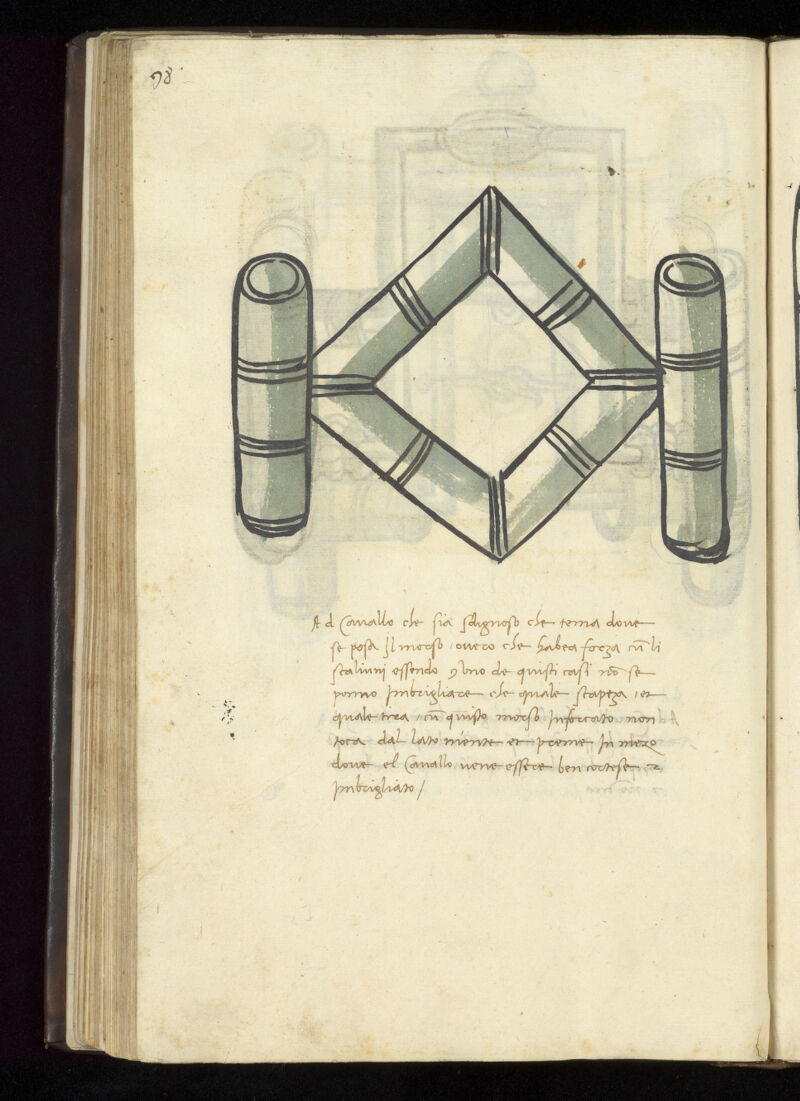 98
Ad Cavallo che sia sdignoso che tema dove
se posa Il morso, overo che habea forza cū li
scaliuni essendo yhno de quisti casi nō se
ponno Imbrigliare che quale scapeza, et
quale tira, cū quisto morso Inforcato non
toca dal lato niente et preme In mezo
dove el Cavallo vene essere ben cortese et
Imbrigliato/